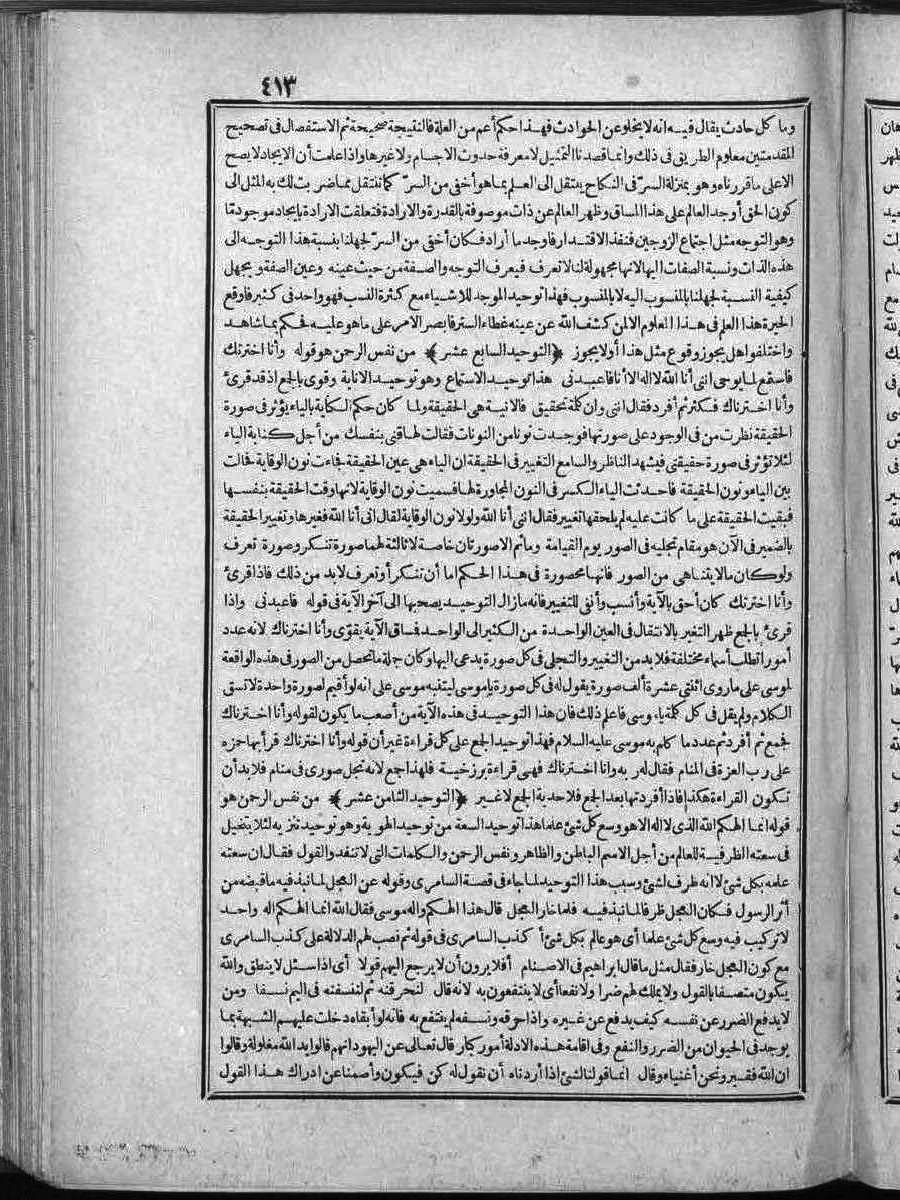 ٤١٣
وما كل حادث يقال فيه انه لا يخلو عن الحوادث فهذا حكم أعم من العلة فالنتيجة صحيحة ثم الاستفصال فى تصحيح
المقدمتين معلوم الطريق فى ذلك وانما قصدنا التمثيل لا معرفة حدوث الاجسام ولا غيرها واذا علمت أن الايجاد لا يصح
الا على ما قررناه وهو بمنزلة السرّ فى النكاح ينتقل الى العلم بما هو أخفى من السرّ كما ننتقل مما ضربت لك به المثل الى
كون الحق أوجد العالم على هذا المساق وظهر العالم عن ذات موصوفة بالقدرة والارادة فتعلقت الارادة بايجاد موجود مّا
وهو التوجه مثل اجتماع الزوجين فنفذ الاقتدار فأوجد ما أراد فكان أخفى من السرّ لجهلنا بنسبة هذا التوجه الى
هذه الذات ونسبة الصفات اليها لانها مجهولة لنا لا تعرف فيعرف التوجه والصفة من حيث عينه وعين الصفة ويجهل
كيفية النسبة لجهلنا بالمنسوب اليه لا بالمنسوب فهذا توحيد الموجد للاشياء مع كثرة النسب فهو واحد فى كثير فأوقع
الحيرة هذا العلم فى هذا المعلوم الا لمن كشف الله عن عينه غطاء الستر فابصر الامر على ما هو عليه فحكم بما شاهد
واختلفوا هل يجوز وقوع مثل هذا أو لا يجوز ﴿التوحيد السابع عشر﴾ من نفس الرحمن هو قوله وأنا اخترتك
فاستمع لما يوحى اننى أنا الله لا اله الا أنا فاعبدنى هذا توحيد الاستماع وهو توحيد الانابة وقوى بالجمع اذ قد قرئ
وأنا اخترناك فكثر ثم أفرد فقال اننى وان كلمة تحقيق فالانية هى الحقيقة ولما كان حكم الكناية بالياء يؤثر فى صورة
الحقيقة نظرت من فى الوجود على صورتها فوجدت نونا من النونات فقالت لها قنى بنفسك من أجل كناية الياء
لئلا تؤثر فى صورة حقيقتى فيشهد الناظر والسامع التغيير فى الحقيقة ان الياء هى عين الحقيقة فجاءت نون الوقاية فحالت
بين الياء ونون الحقيقة فاحدثت الياء الكسر فى النون المجاورة لها فسميت نون الوقاية لانها وقت الحقيقة بنفسها
فبقيت الحقيقة على ما كانت عليه لم يلحقها تغيير فقال اننى أنا الله ولولا نون الوقاية لقال انى أنا الله فغيرها وتغيير الحقيقة
بالضمير فى الآن هو مقام تجليه فى الصور يوم القيامة وما ثم الا صورتان خاصة لا ثالثة لهما صورة تنكر وصورة تعرف
ولو كان ما لا يتناهى من الصور فانها محصورة فى هذا الحكم اما أن تنكر أو تعرف لابد من ذلك فاذا قرئ
وأنا اخترتك كان أحق بالآية وأنسب وأنفى للتغيير فانه مازال التوحيد يصحبها الى آخر الآية فى قوله فاعبدنى واذا
قرئ بالجمع ظهر التغير بالانتقال فى العين الواحدة من الكثير الى الواحد فساق الآية يقوّى وأنا اخترناك لانه عدد
أمورا تطلب أسماء مختلفة فلابد من التغيير والتجلى فى كل صورة يدعى اليها وكان جملة ما تحصل من الصور فى هذه الواقعة
لموسى على ما روى اثنتى عشرة ألف صورة يقول له فى كل صورة ياموسى ليتنبه موسى على انه لو أقيم لصورة واحدة لا تسق
الكلام ولم يقل فى كل كلمة ياموسى فاعلم ذلك فان هذا التوحيد فى هذه الآية من أصعب ما يكون لقوله وأنا اخترناك
فجمع ثم أفرد ثم عدد ما كلم به موسى عليه السلام فهذا توحيد الجمع على كل قراءة غير أن قوله وأنا اخترناك قرأ بها حمزه
على رب العزة فى المنام فقال له ربه وانا اخترناك فهى قراءة برزخية فلهذا جمع لانه تجل صورى فى منام فلابد أن
تكون القراءة هكذا فاذا أفردتها بعد الجمع فلاحدية الجمع لا غير ﴿التوحيد الثامن عشر﴾ من نفس الرحمن هو
قوله انما الهكم الله الذى لا اله الا هو وسع كل شئ علما هذا توحيد السعة من توحيد الهوية وهو توحيد تنزيه لئلا يتخيل
فى سعته الظرفية للعالم من أجل الاسم الباطن والظاهر ونفس الرحمن والكلمات التى لا تنفد والقول فقال ان سعته
علمه بكل شئ لا انه ظرف لشئ وسبب هذا التوحيد لما جاء فى قصة السامرى وقوله عن العجل لما نبذ فيه ما قبضه من
أثر الرسول فكان العجل ظرفا لما نبذ فيه فلما خار العجل قال هذا الهكم واله موسى فقال الله انما الهكم اله واحد
لا تركيب فيه وسع كل شئ علما أى هو عالم بكل شئ أكذب السامرى فى قوله ثم نصب لهم الدلالة على كذب السامرى
مع كون العجل خار فقال مثل ما قال ابراهيم فى الاصنام أفلا يرون أن لا يرجع اليهم قولا أى اذا سئل لا ينطق والله
يكون متصفا بالقول ولا يملك لهم ضرا ولا نفعا أى لا ينتفعون به لانه قال لنحرقنه ثم لننسفنه فى اليم نسفا ومن
لا يدفع الضرر عن نفسه كيف يدفع عن غيره واذا حرقه ونسفه لم ينتفع به فانه لو أبقاه دخلت عليهم الشبهة بما
يوجد فى الحيوان من الضرر والنفع وفى اقامة هذه الادلة أمور كبار قال تعالى عن اليهود انهم قالوا يد الله مغلولة وقالوا
ان الله فقير ونحن أغنياء وقال انما قولنا لشئ اذا أردناه أن نقول له كن فيكون وأصمنا عن ادراك هذا القول